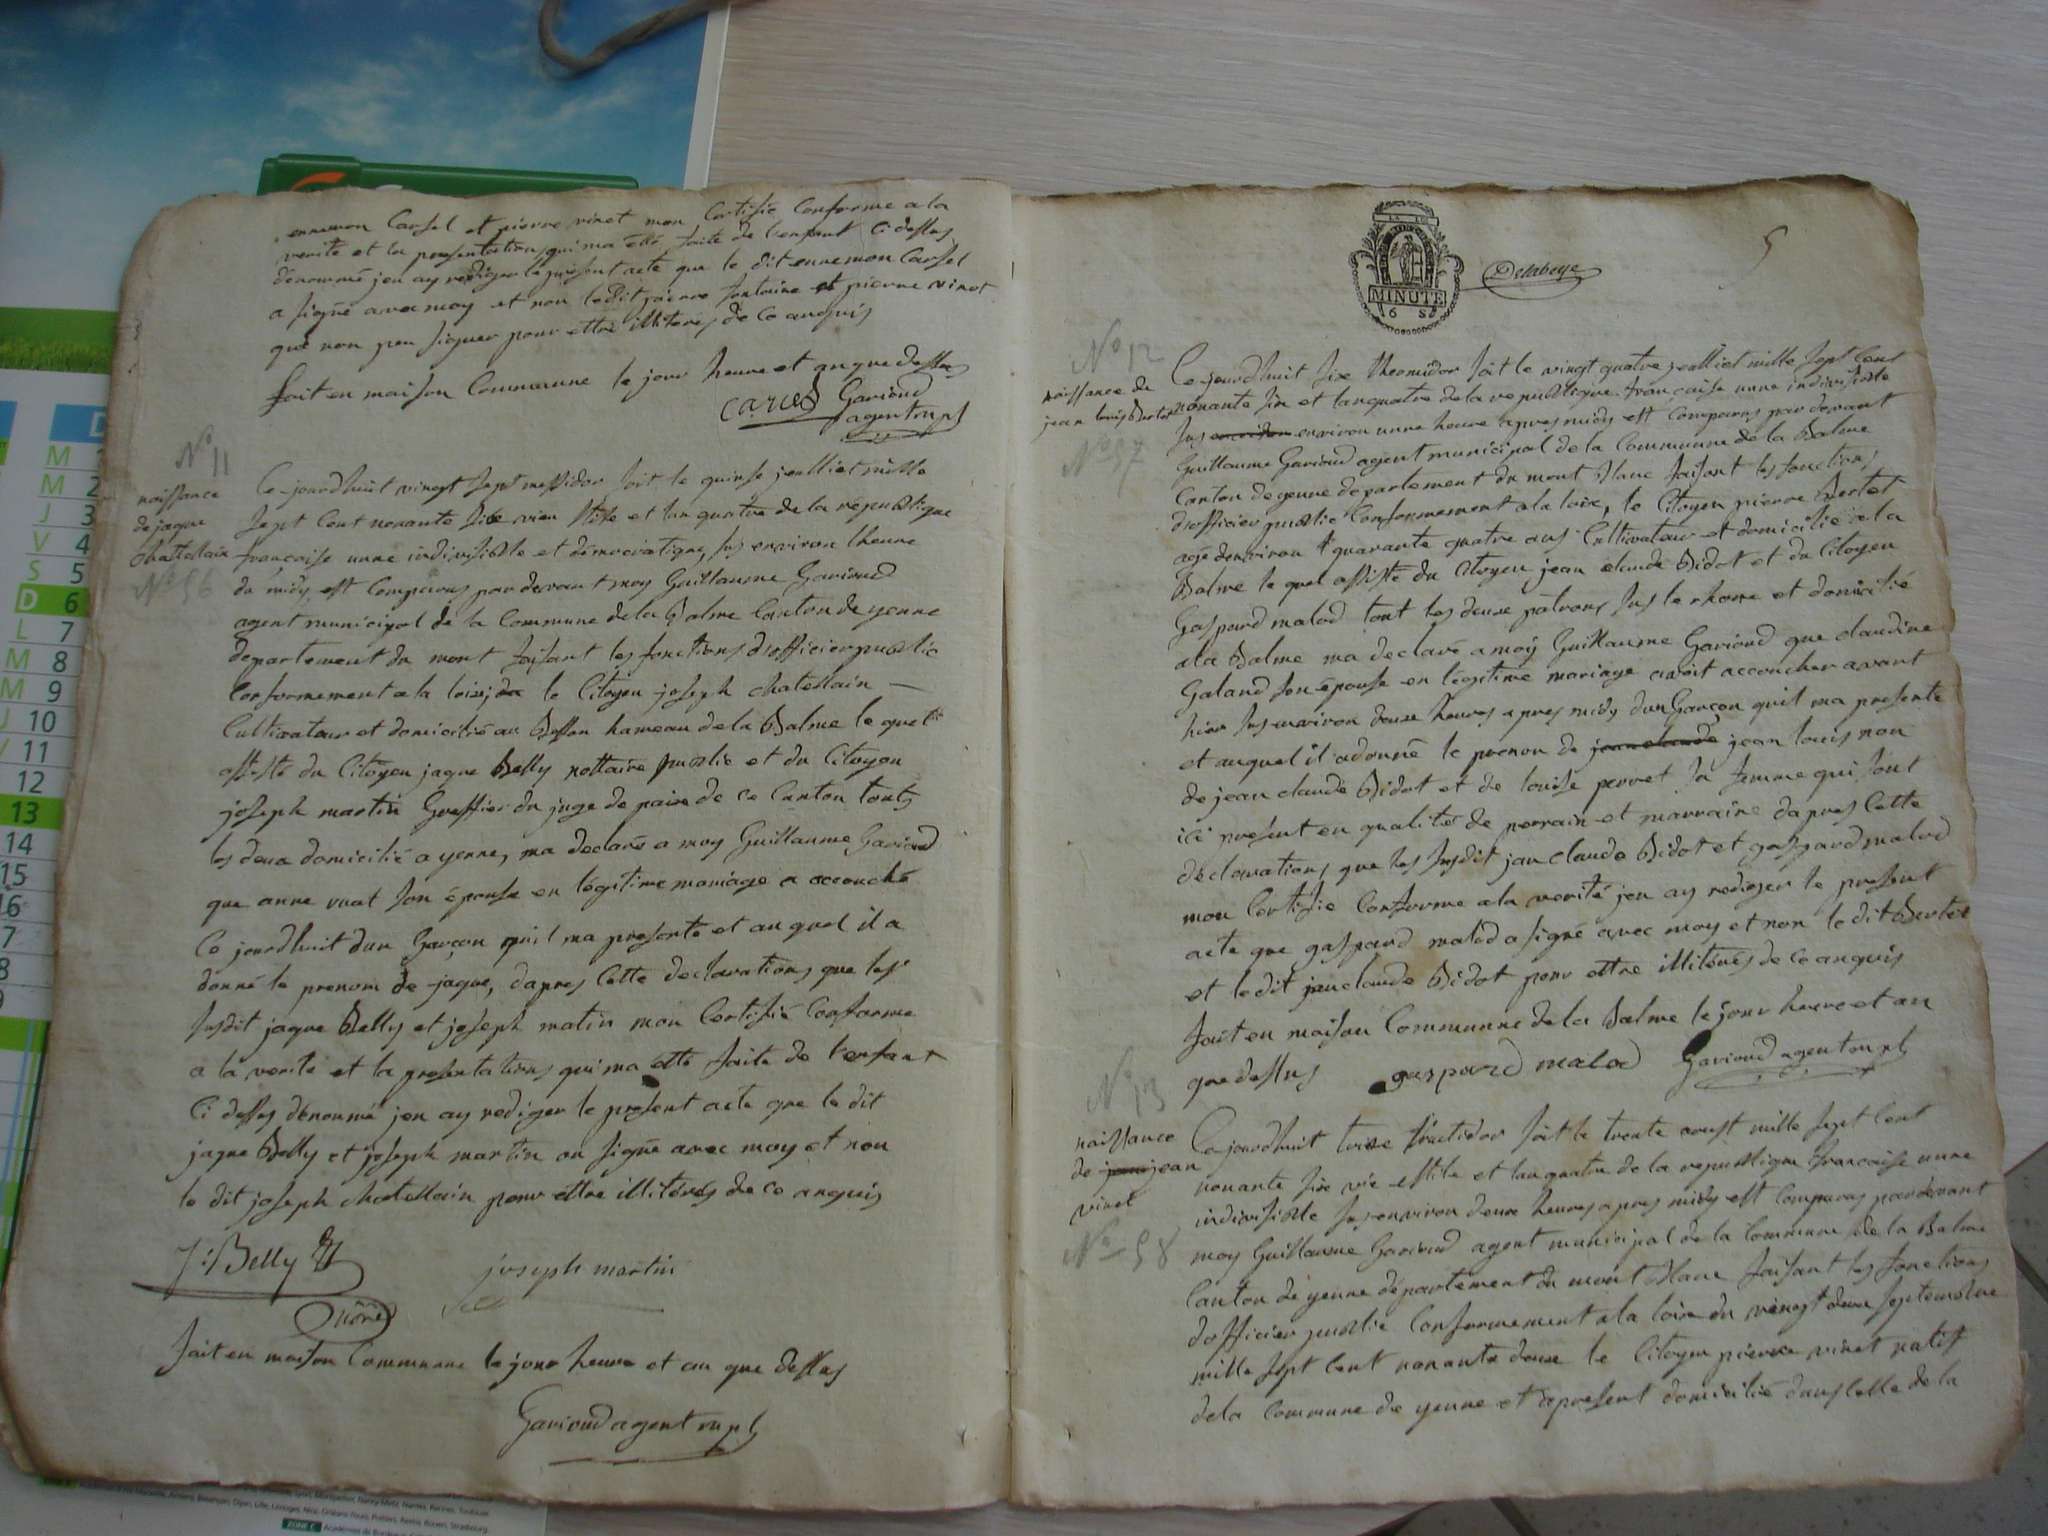 ennemon Carsel et pierre vinet mon Certifié Conforme a la
verité et la presentations qui ma été faite de l'enfant Ci dessus
dénommé jen ay rediger le present acte que le dit ennemon Carsel
a signé avec moy et non le dit pierre fontaine et pierre vinet
que non peu signer pour ettre illiterés de ce anquis
fait en maison Commune le jour heure et an que dessus
carcel Garioud
agent mpl
No 11
naissance
de jaque
Chatellain
No 56
Ce jourdhuit vingt sept messidor soit le quinse jeulliet mille
sept cent nonante six vieu stile et lan quatre de la république
françoise unne indivisible et démocratique, sus environ lheure
du midy est Comparus par devant moy Guillaume Garioud
agent municipal de la Commune de la Balme Canton de yenne
departement du mont faisant les fonctions dofficier public
Conformement a la loix, le Citoyen joseph chatellain
Cultivateur et domicilié au Besson hameau de la Balme le quel
assisté du Citoyen jaque Belly nottaire public et du Citoyen
joseph martin Greffier du juge de paix de ce Canton touts
les deux domicilié a yenne, ma declaré a moy Guillaume Garioud
que anne vuat son épouse en légitime mariage a accouché
Ce jourdhuit dun Garçon quil ma presenté et au quel il a
donné le prenom de jaque, dapres Cette declarations que les
susdit jaque Belly et joseph matin mon Certifié Conforme
a la verité et la presentations qui ma etté faite de l'enfant
Ci dessus dénommé jen ay rediger le present acte que le dit
jaque Belly et joseph martin on signé avec moy et non
le dit joseph chatellain pour ettre illitérés de ce anquis
J: Belly
joseph martin
fait en maison Commune le jour heure et an que dessus
Garioud agent mpl
MINUTE
6 S
Delaboye
5
No 12
naissance de
jean louis Bertet
No 57
Ce jourdhuit six thermidor soit le vingt quatre jeulliet mille sept Cent
nonante six et lan quatre de la republique française unne indivisible
sus environ unne heure apres midy est Comparus par devant
Guillaume Garioud agent municipal de la Commune de la Balme
Canton de yenne departement du mont blanc faisant les fonctions
dofficier public Conformement a la loix, le Citoyen pierre Bertet
agé denviron quarante quatre ans Cultivateur et domicilié a la
Balme le quel assisté du Citoyen jean claude Bidot et du Citoyen
Gaspard malod tout les deux patrons sus le rhone et domicilié
a la Balme ma declaré a moy Guillaume Garioud que claudine
Galand son épouse en légitime mariage avoit accoucher avant
hier sus environ deux heures apres midy dun Garçon quil ma presenté
et auquel il a donné le prenom de jean claude jean louis non
de jean claude Bidot et de louise perret sa femme qui sont
ici present en qualité de perrain et marraine dapres Cette
déclarations que les susdit jan claude Bidot et gaspard malod
mon Certifié Conforme a la verité jen ay rediger le present
acte que gaspard malod a signé avec moy et non le dit Bertet
et le dit jean claude Bidot pour ettre illitérés de ce anquis
fait en maison Commune de la Balme le jour heure et an
que dessus gaspard malod Garioud agent mpl
No 13
naissance
de jean
vinet
No 58
Ce jourdhuit treize fructidor soit le trente aoust mille sept Cent
nonante six vieu stile et lan quatre de la republique française unne
indivisible sus environ deux heures apres midy est Comparus par devant
moy Guillaume Garioud agent municipal de la Commune de la Balme
Canton de yenne département du mont blanc faisant les fonctions
dofficier public Conformement a la loix du vingt deux septembre
mille sept Cent nonante deux le Citoyen pierre vinet natif
de la Commune de yenne et apresent domicilié dans Celle de la
M
M 2
J 3
V 4
S 5
D 6
L 7
M 8
M 9
10
11
12
13
14
15
16
7
8
9
ZONE C